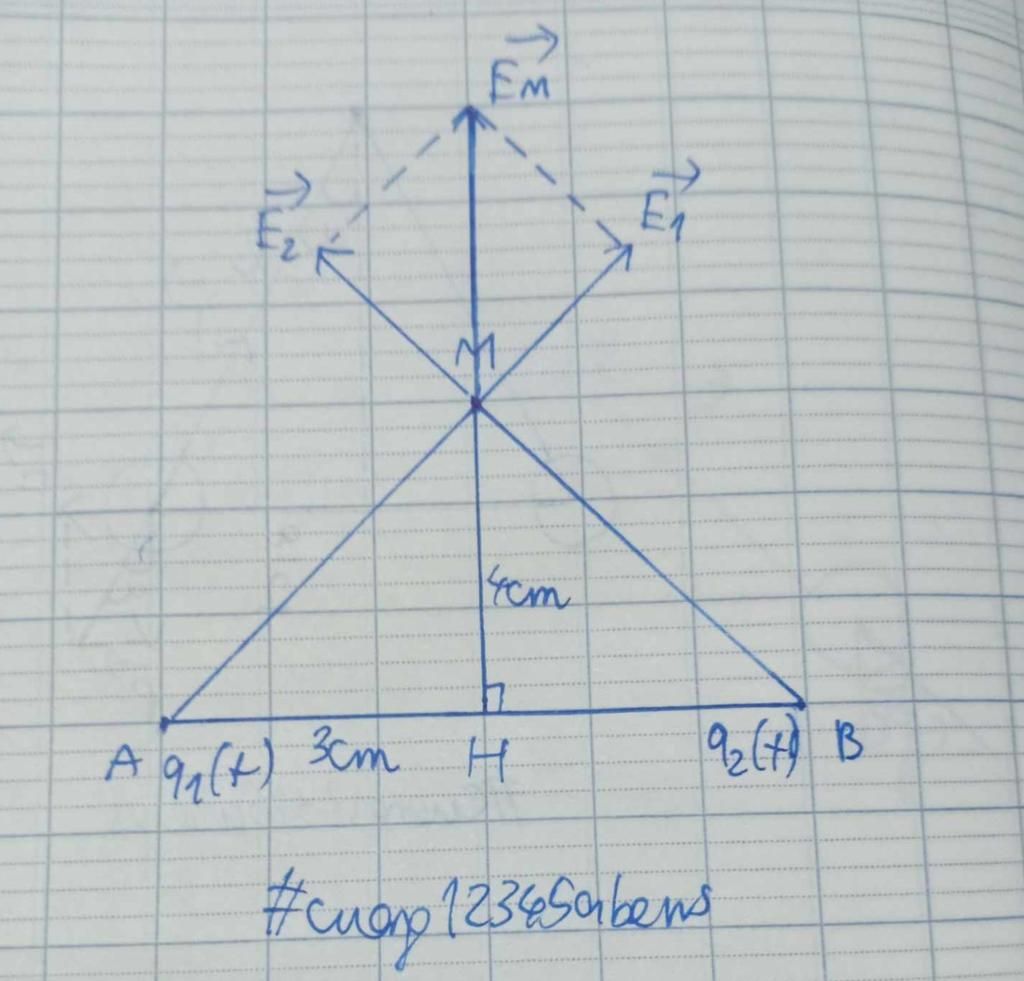 EM
E2
E1
M
4cm
A q1(+) 3cm H q2(+) B
#cuong12345abens